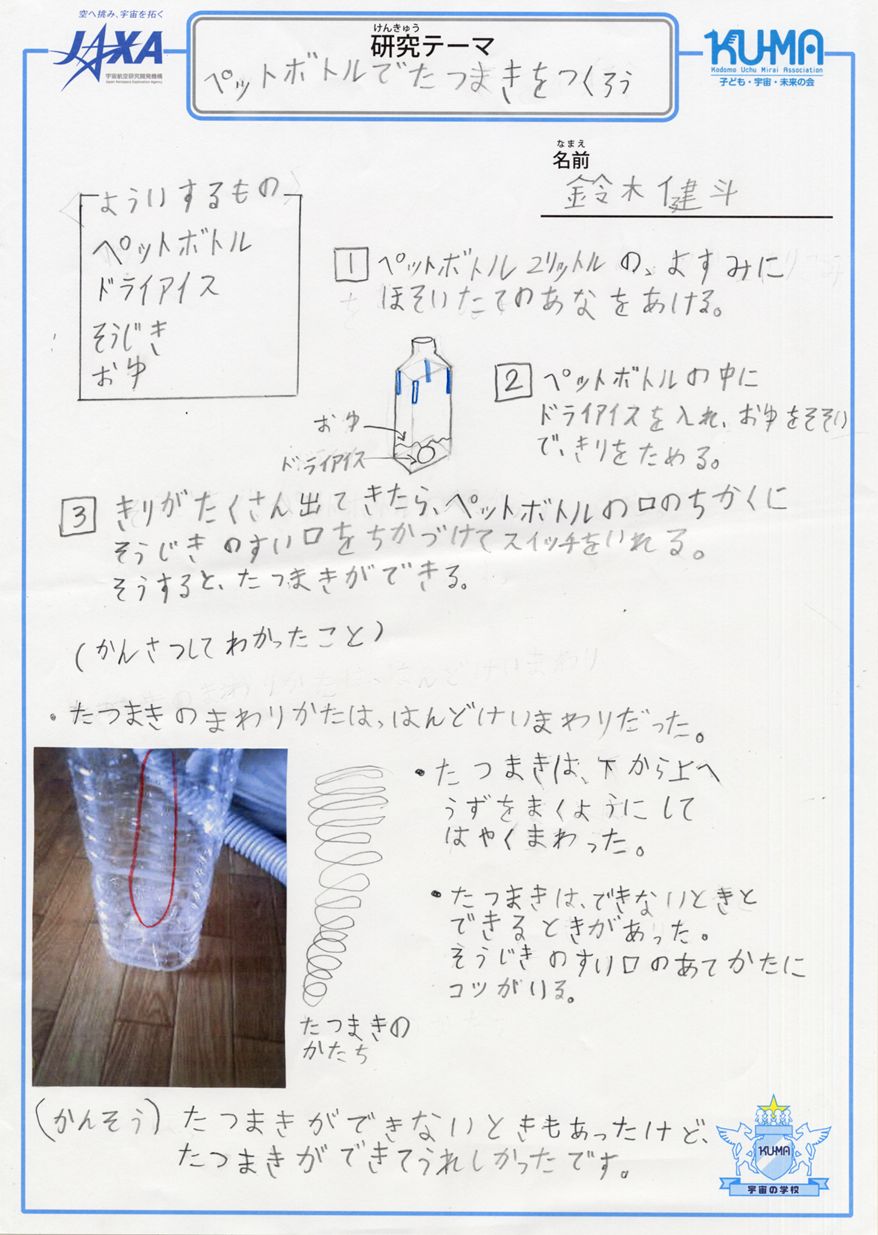 空へ挑み、宇宙を拓く
JAXA
宇宙航空研究開発機構
Japan Aerospace Exploration Agency
けんきゅう
研究テーマ
ペットボトルでたつまきをつくろう
KU-MA
Kodomo Uchu Mirai Association
子ども・宇宙・未来の会
なまえ
名前
鈴木健斗
よういするもの
ペットボトル
ドライアイス
そうじき
おゆ
1 ペットボトル2リットルの、よすみに
ほそいたてのあなをあける。
おゆ
ドライアイス
2 ペットボトルの中に
ドライアイスを入れ、おゆをそそい
で、きりをためる。
3 きりがたくさん出てきたら、ペットボトルの口のちかくに
そうじきのすい口をちかづけてスイッチをいれる。
そうすると、たつまきができる。
(かんさつしてわかったこと)
・たつまきのまわりかたは、はんどけいまわりだった。
・たつまきは、下から上へ
うずをまくようにして
はやくまわった。
・たつまきは、できないときと
できるときがあった。
そうじきのすい口のあてかたに
コツがいる。
たつまきの
かたち
(かんそう)たつまきができないときもあったけど、
たつまきができてうれしかったです。
KU-MA
宇宙の学校